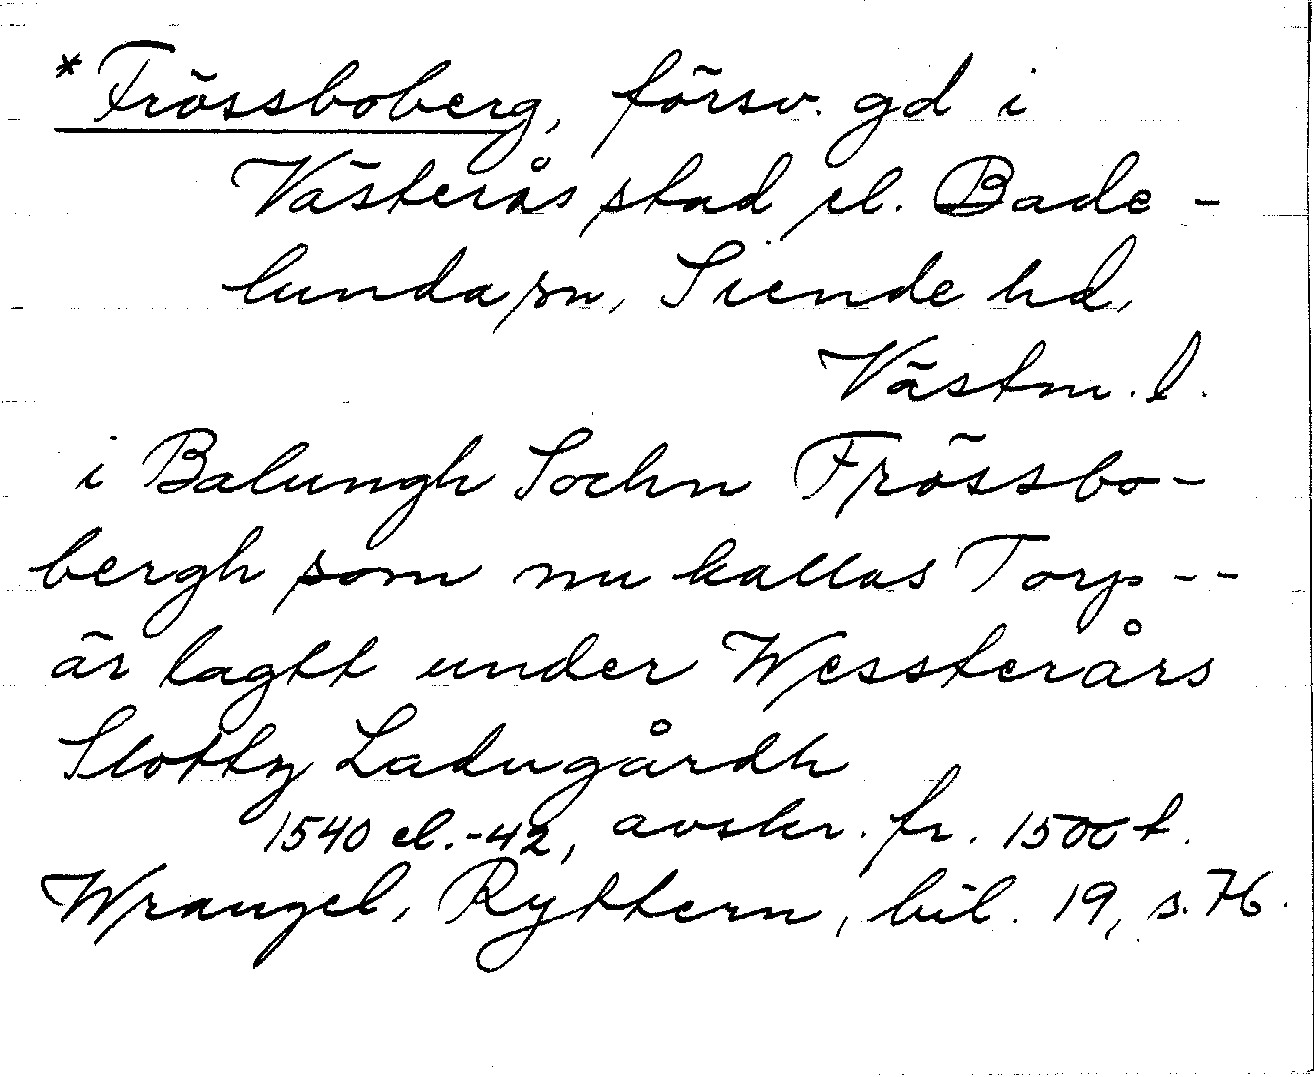 *Frössboberg, försv. gd i
Västerås stad el. Bade-
lunda sn, Siende hd,
Västm. l.
i Balungh Sochn Frössbo-
bergh som nu kallas Torp --
är lagtt under Wessterårs
Slottz Ladugårdh
1540 el. -42, avskr. fr. 1500 t.
Wrangel, Ryttern, bil. 19, s. 76.